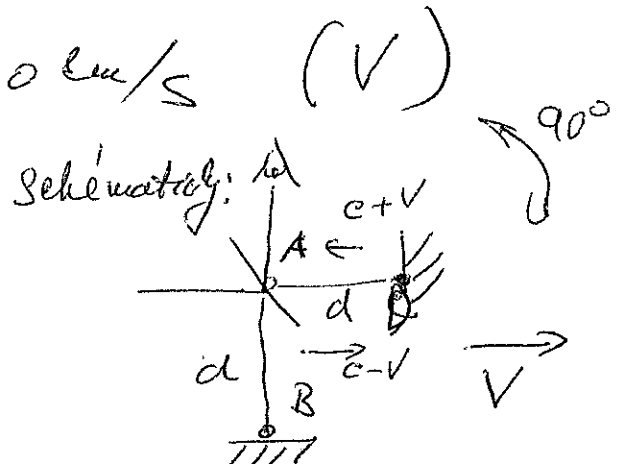 0 km/s (V)
90°
Schématicky:
c+V
A ←
d D
d → c-V → V
B